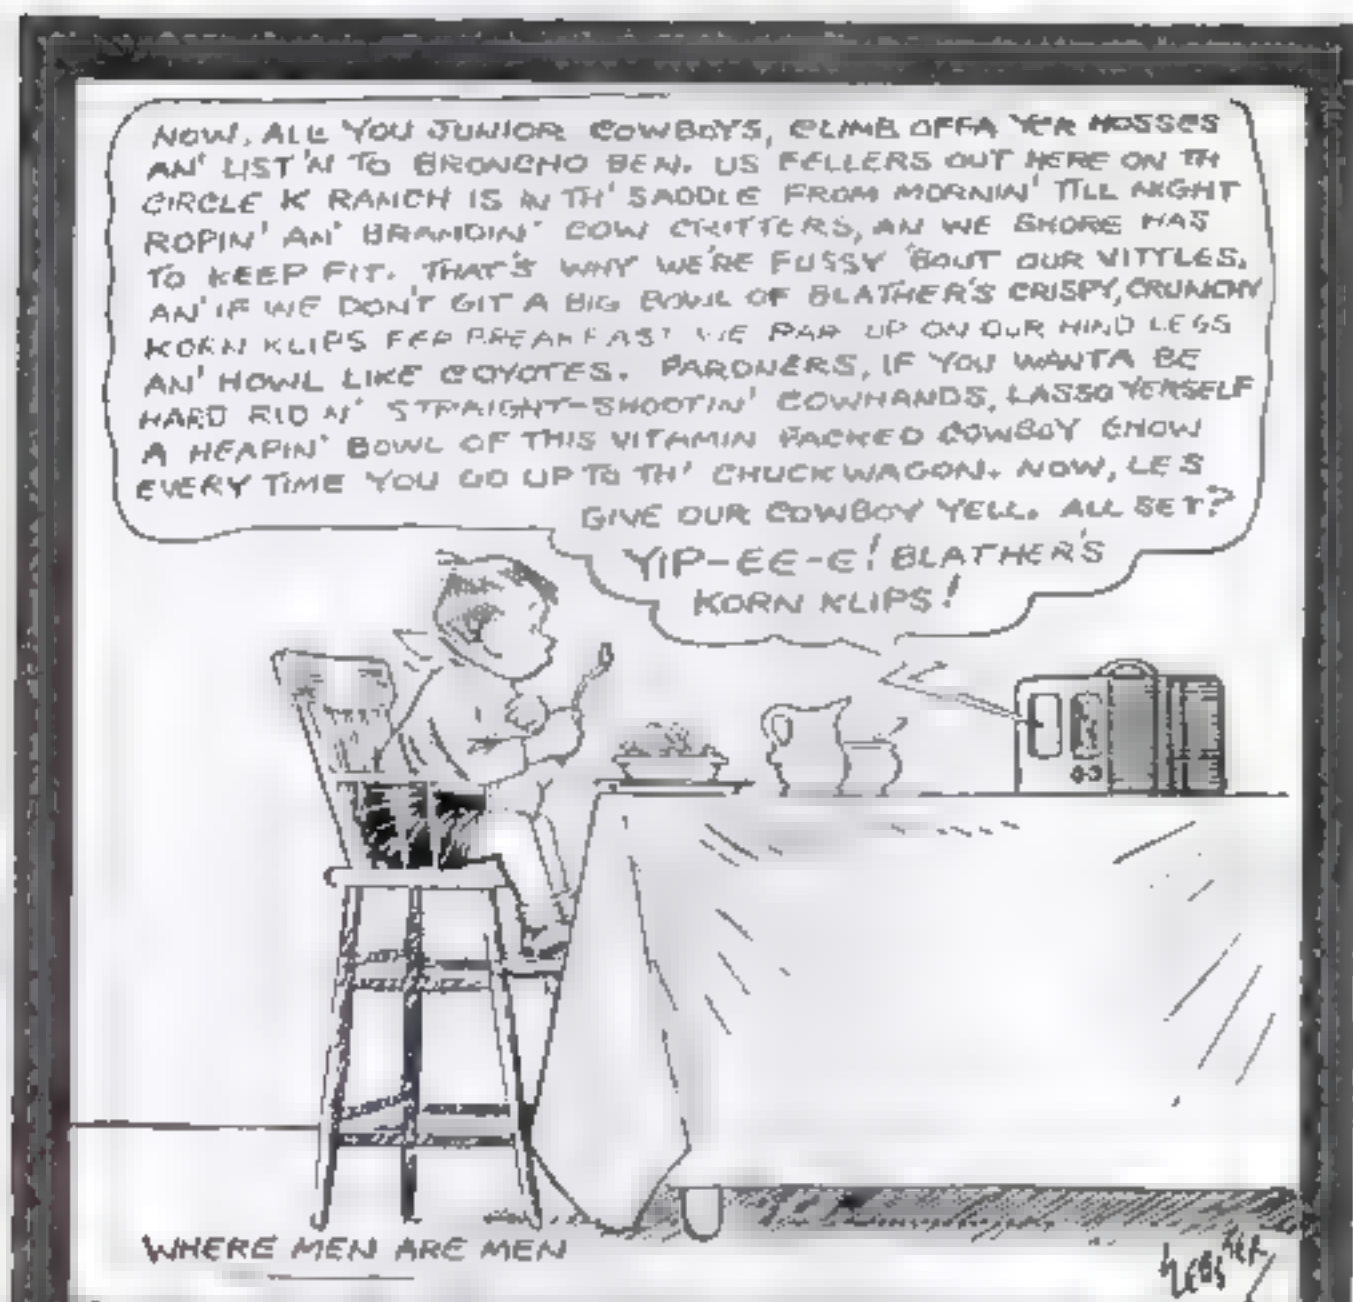 NOW, ALL YOU JUNIOR COWBOYS, CLIMB OFFA YER HOSSES
AN' LIST'N TO BRONCHO BEN. US FELLERS OUT HERE ON TH
CIRCLE K RANCH IS IN TH' SADDLE FROM MORNIN' TILL NIGHT
ROPIN' AN' BRANDIN' COW CRITTERS, AN WE SHORE HAS
TO KEEP FIT. THAT'S WHY WE'RE FUSSY 'BOUT OUR VITTLES.
AN' IF WE DON'T GIT A BIG BOWL OF BLATHER'S CRISPY, CRUNCHY
KORN KLIPS FER BREAKFAST WE RAR UP ON OUR HIND LEGS
AN' HOWL LIKE COYOTES. PARDNERS, IF YOU WANTA BE
HARD RID N' STRAIGHT-SHOOTIN' COWHANDS, LASSO YERSELF
A HEAPIN' BOWL OF THIS VITAMIN PACKED COWBOY CHOW
EVERY TIME YOU GO UP TO TH' CHUCK WAGON. NOW, LE S
GIVE OUR COWBOY YELL. ALL SET?
YIP-EE-E! BLATHER'S
KORN KLIPS!
WHERE MEN ARE MEN
WEBSTER